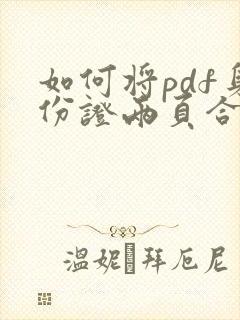 如何将pdf身
份證兩頁合
溫妮 拜厄尼